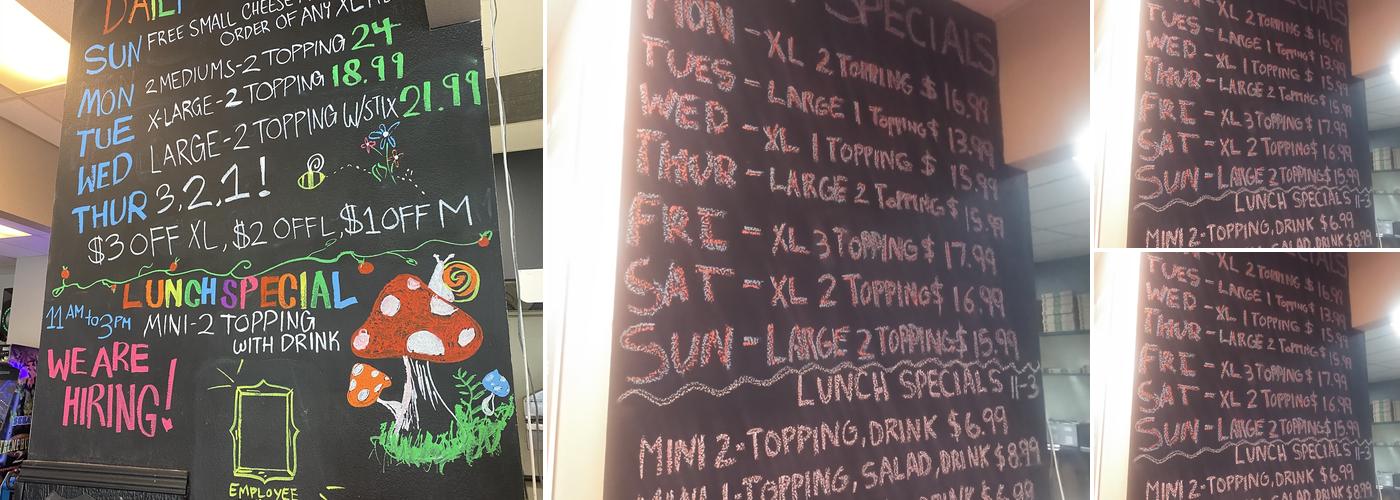 DAILY
SUN FREE SMALL CHEESE
ORDER OF ANY XL
MON 2 MEDIUMS-2 TOPPING 24
TUE X-LARGE-2 TOPPING 18.99
WED LARGE-2 TOPPING W/STIX 21.99
THUR 3,2,1!
$3 OFF XL, $2 OFF L, $1 OFF M
LUNCH SPECIAL
11AM to 3PM MINI-2 TOPPING
WITH DRINK
WE ARE
HIRING!
EMPLOYEE
SPECIALS
MON - XL 2 TOPPING $16.99
TUES - LARGE 1 TOPPING $13.99
WED - XL 1 TOPPING $15.99
THUR - LARGE 2 TOPPING $15.99
FRI - XL 3 TOPPING $17.99
SAT - XL 2 TOPPING $16.99
SUN - LARGE 2 TOPPING $15.99
LUNCH SPECIALS 11-3
MINI 2-TOPPING, DRINK $6.99
MINI 1-TOPPING, SALAD, DRINK $8.99
SPECIALS
XL 2 TOPPING $16.99
TUES - LARGE 1 TOPPING $13.99
WED - XL 1 TOPPING $15.99
THUR - LARGE 2 TOPPING $15.99
FRI - XL 3 TOPPING $17.99
SAT - XL 2 TOPPING $16.99
SUN - LARGE 2 TOPPING $15.99
LUNCH SPECIALS 11-3
MINI 2-TOPPING, DRINK $6.99
SALAD, DRINK $8.99
XL 2 TOPPING $16.99
TUES - LARGE 1 TOPPING $13.99
WED - XL 1 TOPPING $15.99
THUR - LARGE 2 TOPPING $15.99
FRI - XL 3 TOPPING $17.99
SAT - XL 2 TOPPING $16.99
SUN - LARGE 2 TOPPING $15.99
LUNCH SPECIALS 11-3
MINI 2-TOPPING, DRINK $6.99
SALAD, DRINK $8.99